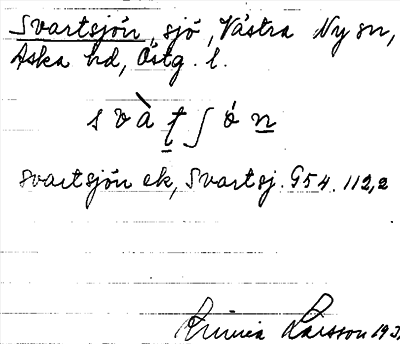 Svartsjön, sjö, Västra Ny sn,
Aska hd, Östg. l.
svàtʃón
svartsjön ek, Svartsj. G54. 112,2
Larsson 193